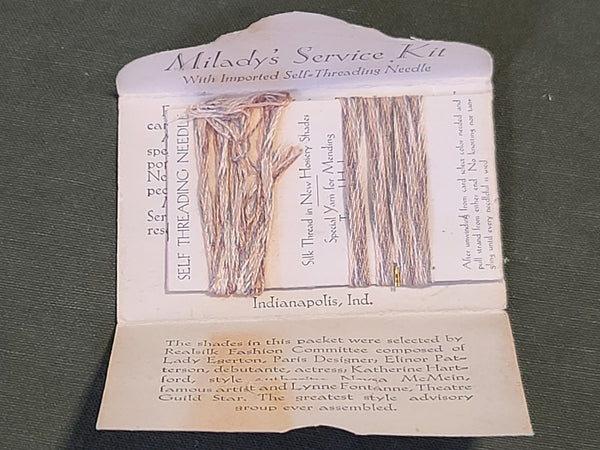 Milady's Service Kit
With Imported Self-Threading Needle
SELF THREADING NEEDLE
Silk Thread in New Hosiery Shades
Special Yarn for Mending
After unwinding from card what color needed and
pull strand from either end. No knotting nor tan-
gling until every needleful is used.
Indianapolis, Ind.
The shades in this packet were selected by
Realsilk Fashion Committee composed of
Lady Egerton, Paris Designer; Elinor Pat-
terson, debutante, actress; Katherine Hart-
ford, style Neysa McMein,
famous artist and Lynne Fontanne, Theatre
Guild Star. The greatest style advisory
group ever assembled.